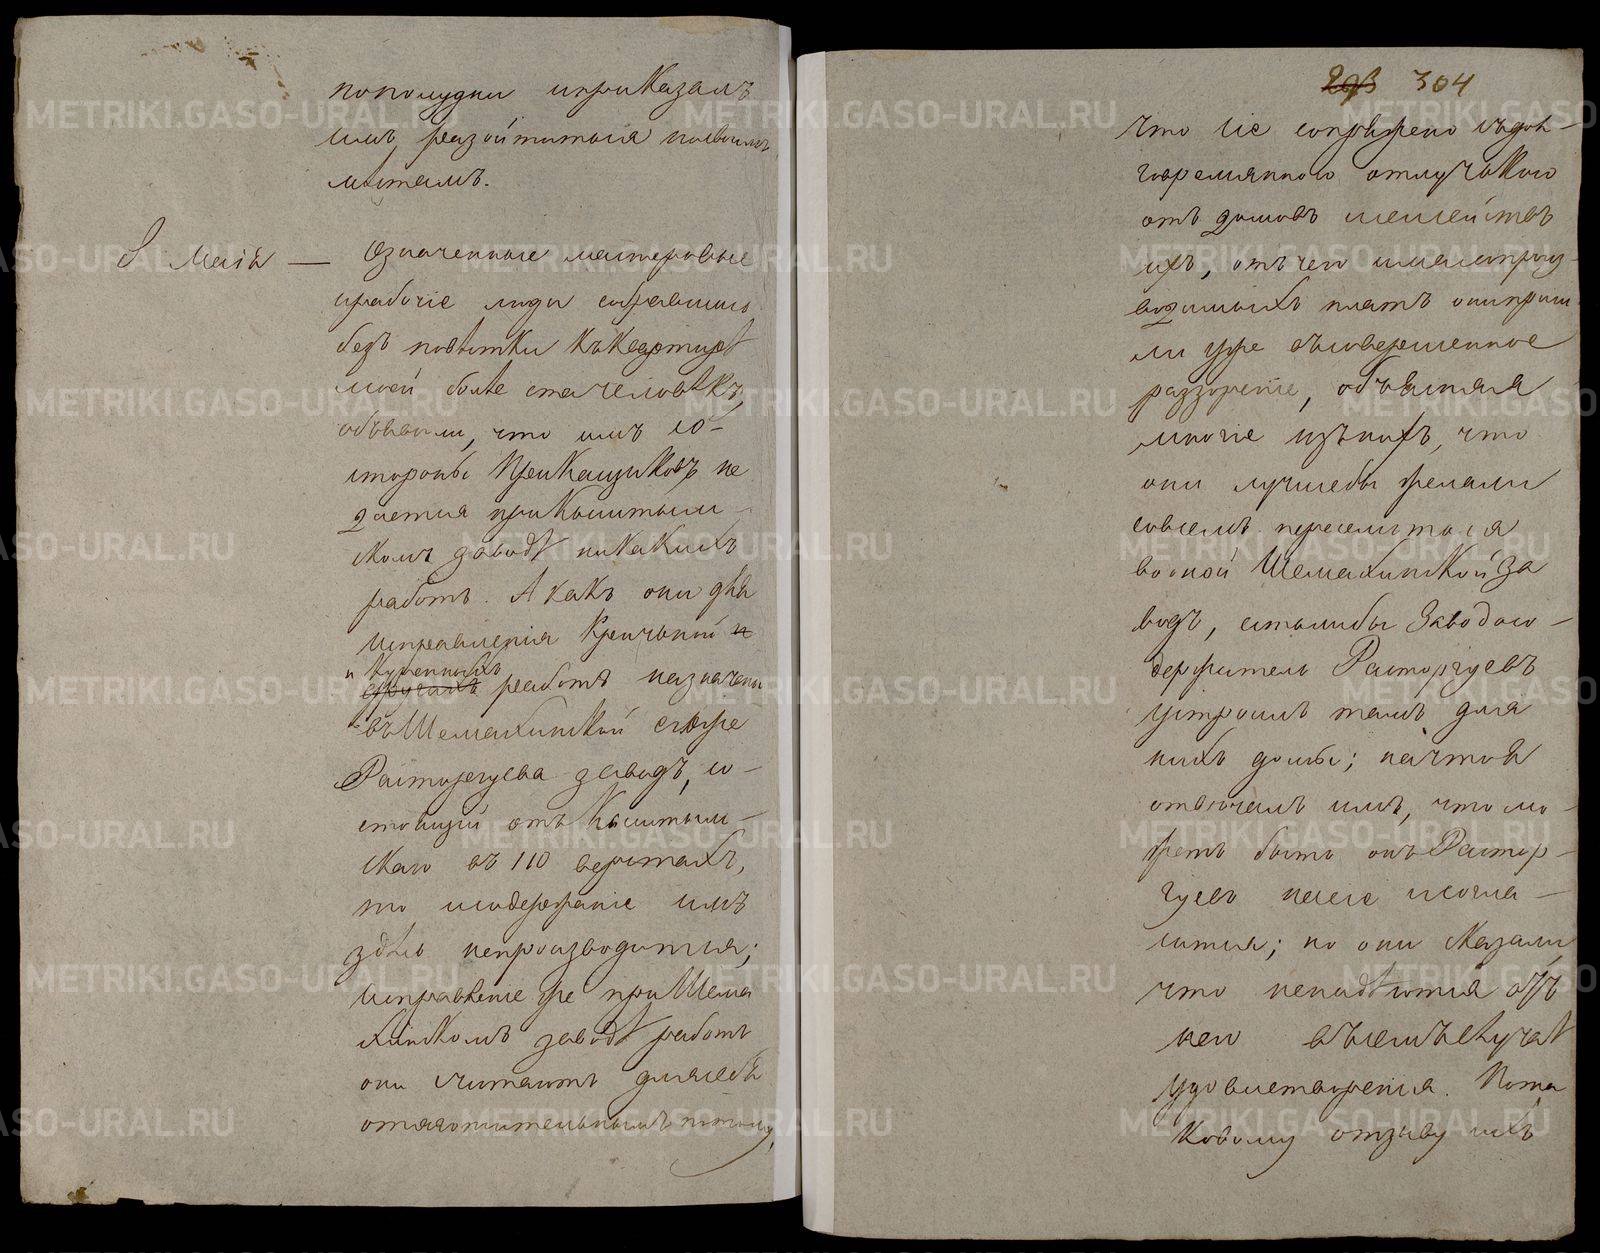 пополудни иприказалъ
имъ разойтиться посвоимъ
мѣстамъ.
8 Маія — Означенные мастеровые
ирабочіе люди собравшись
безъ повѣстки къквартирѣ
моей болѣе ста человѣкъ,
объявили, что имъ со-
стороны Прикащиковъ не
дается приКыштым-
скомъ заводѣ никакихъ
работъ. А какъ они для
исправленія Кричной и
и Куренныхъ
другихъ работъ назначены
въШемахинской егоже
Расторгуева заводъ, со-
стоящій отъ Кыштым-
скаго въ 110 верстахъ,
то исодержаніе имъ
здѣсь непроизводится;
исправленіе же приШема
хинскомъ заводѣ работъ
они считаютъ длясебя
отяготительнымъ потому,
293 304
что сіе сопряжено съдол-
говремянною отлучкою
отъ домовъ исемействъ
ихъ, отъ чего ималопроиз-
водимыхъ платъ онипришли
ли уже въсовершенное
раззореніе, объясняя
многіе изънихъ, что
они лучшебы желали
совсемъ переселиться
вооной Шемахинской за
водъ, естьлибы Заводосо-
держатель Расторгуевъ
устроилъ тамъ для
нихъ домы; начто я
отвѣчалъ имъ, что мо-
жетъ быть онъ Растор-
гуевъ насіе исогла-
сится; но они сказали,
что ненадѣются отъ
него въсемъ случаѣ
удовлетворенія. Пота
ковому отзыву ихъ
METRIKI.GASO-URAL.RU